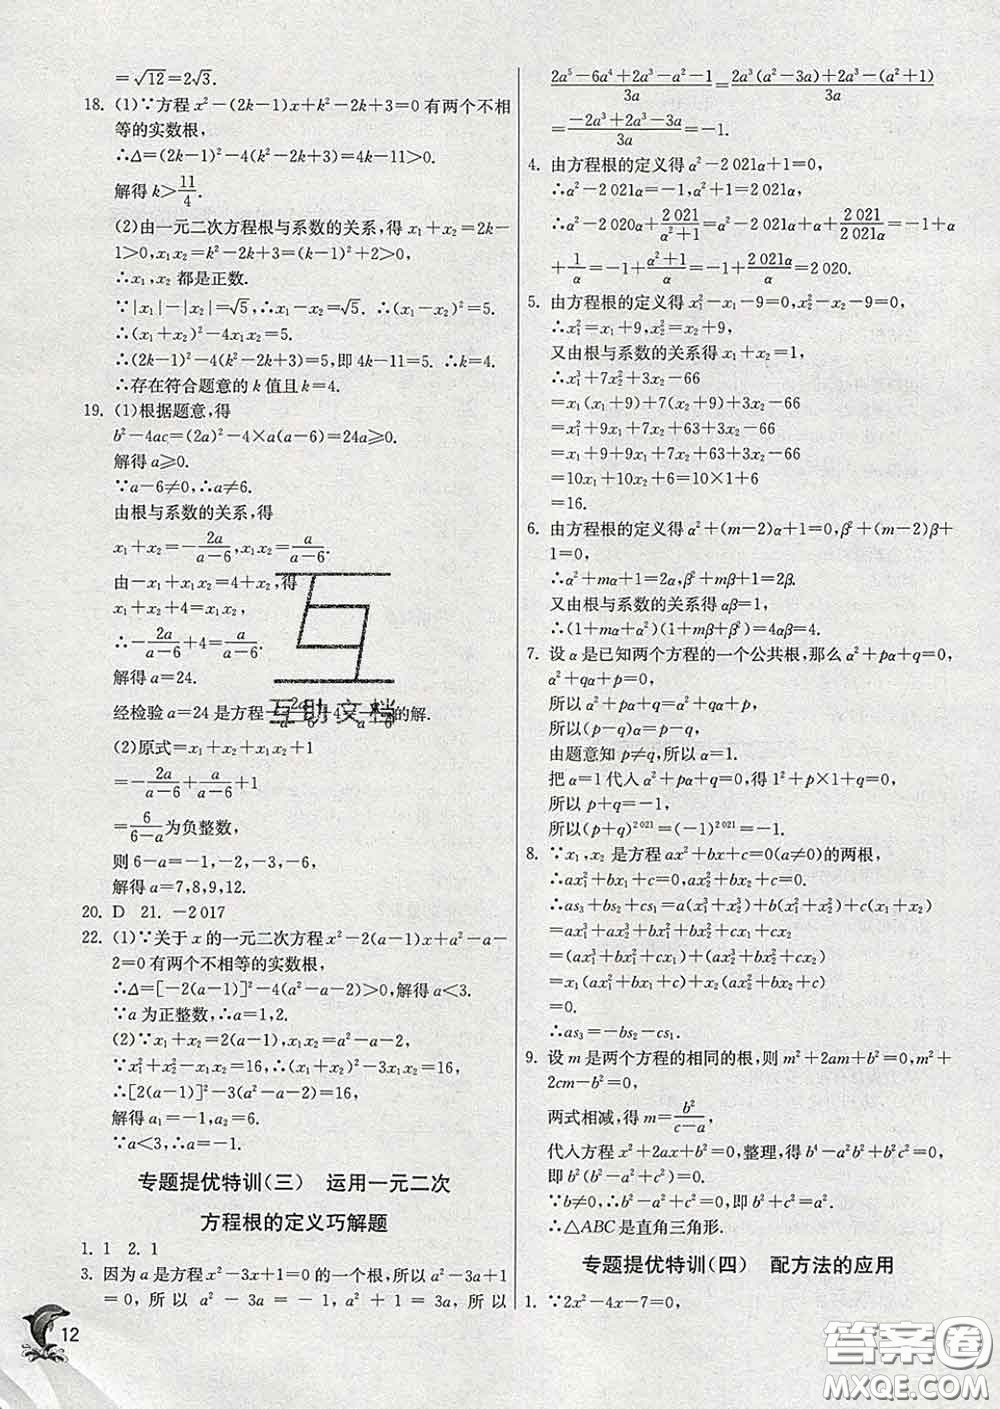 =√12=2√3.
18. (1)∵方程 x²-(2k-1)x+k²-2k+3=0 有两个不相
等的实数根,
∴Δ=(2k-1)²-4(k²-2k+3)=4k-11>0.
解得 k>11/4.
(2)由一元二次方程根与系数的关系,得 x₁+x₂=2k-
1>0,x₁x₂=k²-2k+3=(k-1)²+2>0,
∴x₁,x₂ 都是正数.
∵|x₁|-|x₂|=√5,∴x₁-x₂=√5. ∴(x₁-x₂)²=5.
∴(x₁+x₂)²-4x₁x₂=5.
∴(2k-1)²-4(k²-2k+3)=5,即 4k-11=5. ∴k=4.
∴存在符合题意的 k 值且 k=4.
19. (1)根据题意,得
b²-4ac=(2a)²-4×a(a-6)=24a≥0.
解得 a≥0.
∵a-6≠0,∴a≠6.
由根与系数的关系,得
x₁+x₂=-2a/(a-6),x₁x₂=a/(a-6).
由-x₁+x₁x₂=4+x₂,得
x₁+x₂+4=x₁x₂,
∴-2a/(a-6)+4=a/(a-6).
解得 a=24.
经检验 a=24 是方程-2a/(a-6)+4=a/(a-6)的解.
(2)原式=x₁+x₂+x₁x₂+1
=-2a/(a-6)+a/(a-6)+1
=6/(6-a)为负整数,
则 6-a=-1,-2,-3,-6,
解得 a=7,8,9,12.
20. D 21. -2 017
22. (1)∵关于 x 的一元二次方程 x²-2(a-1)x+a²-a-
2=0 有两个不相等的实数根,
∴Δ=[-2(a-1)]²-4(a²-a-2)>0,解得 a<3.
∵a 为正整数,∴a=1,2.
(2)∵x₁+x₂=2(a-1),x₁x₂=a²-a-2,
∵x₁²+x₂²-x₁x₂=16,∴(x₁+x₂)²-3x₁x₂=16,
∴[2(a-1)]²-3(a²-a-2)=16,
解得 a₁=-1,a₂=6.
∵a<3,∴a=-1.
专题提优特训(三) 运用一元二次
方程根的定义巧解题
1. 1 2. 1
3. 因为 a 是方程 x²-3x+1=0 的一个根,所以 a²-3a+1
=0, 所以 a²-3a=-1, a²+1=3a, 所以
12
(2a⁵-6a⁴+2a³-a²-1)/3a=(2a³(a²-3a)+2a³-(a²+1))/3a
=(-2a³+2a³-3a)/3a=-1.
4. 由方程根的定义得 α²-2 021α+1=0,
∴α²-2 021α=-1,α²+1=2 021α,
∴α²-2 020α+2 021/(α²+1)=α²-2 021α+α+2 021/2 021α=-1+α
+1/α=-1+(α²+1)/α=-1+2 021α/α=2 020.
5. 由方程根的定义得 x₁²-x₁-9=0,x₂²-x₂-9=0,
∴x₁²=x₁+9,x₂²=x₂+9,
又由根与系数的关系得 x₁+x₂=1,
∴x₁³+7x₂²+3x₂-66
=x₁(x₁+9)+7(x₂+9)+3x₂-66
=x₁²+9x₁+7x₂+63+3x₂-66
=x₁+9+9x₁+7x₂+63+3x₂-66
=10x₁+10x₂+6=10×1+6
=16.
6. 由方程根的定义得 α²+(m-2)α+1=0,β²+(m-2)β+
1=0,
∴α²+mα+1=2α,β²+mβ+1=2β.
又由根与系数的关系得 αβ=1,
∴(1+mα+α²)(1+mβ+β²)=4αβ=4.
7. 设 α 是已知两个方程的一个公共根,那么 α²+pα+q=0,
α²+qα+p=0,
所以 α²+pα+q=α²+qα+p,
所以(p-q)α=p-q,
由题意知 p≠q,所以 α=1.
把 α=1 代入 α²+pα+q=0,得 1²+p×1+q=0,
所以 p+q=-1,
所以(p+q)²⁰²¹=(-1)²⁰²¹=-1.
8. ∵x₁,x₂ 是方程 ax²+bx+c=0(a≠0)的两根,
∴ax₁²+bx₁+c=0,ax₂²+bx₂+c=0.
∴as₃+bs₂+cs₁=a(x₁³+x₂³)+b(x₁²+x₂²)+c(x₁+x₂)
=ax₁³+ax₂³+bx₁²+bx₂²+cx₁+cx₂
=(ax₁³+bx₁²+cx₁)+(ax₂³+bx₂²+cx₂)
=x₁(ax₁²+bx₁+c)+x₂(ax₂²+bx₂+c)
=0.
∴as₃=-bs₂-cs₁.
9. 设 m 是两个方程的相同的根,则 m²+2am+b²=0,m²+
2cm-b²=0,
两式相减,得 m=b²/(c-a),
代入方程 x²+2ax+b²=0,整理,得 b⁴-a²b²+b²c²=0,
即 b²(b²-a²+c²)=0.
∵b≠0,∴b²-a²+c²=0,即 b²+c²=a².
∴△ABC 是直角三角形.
专题提优特训(四) 配方法的应用
1. ∵2x²-4x-7=0,
互助文档
答案卷
MXQE.COM